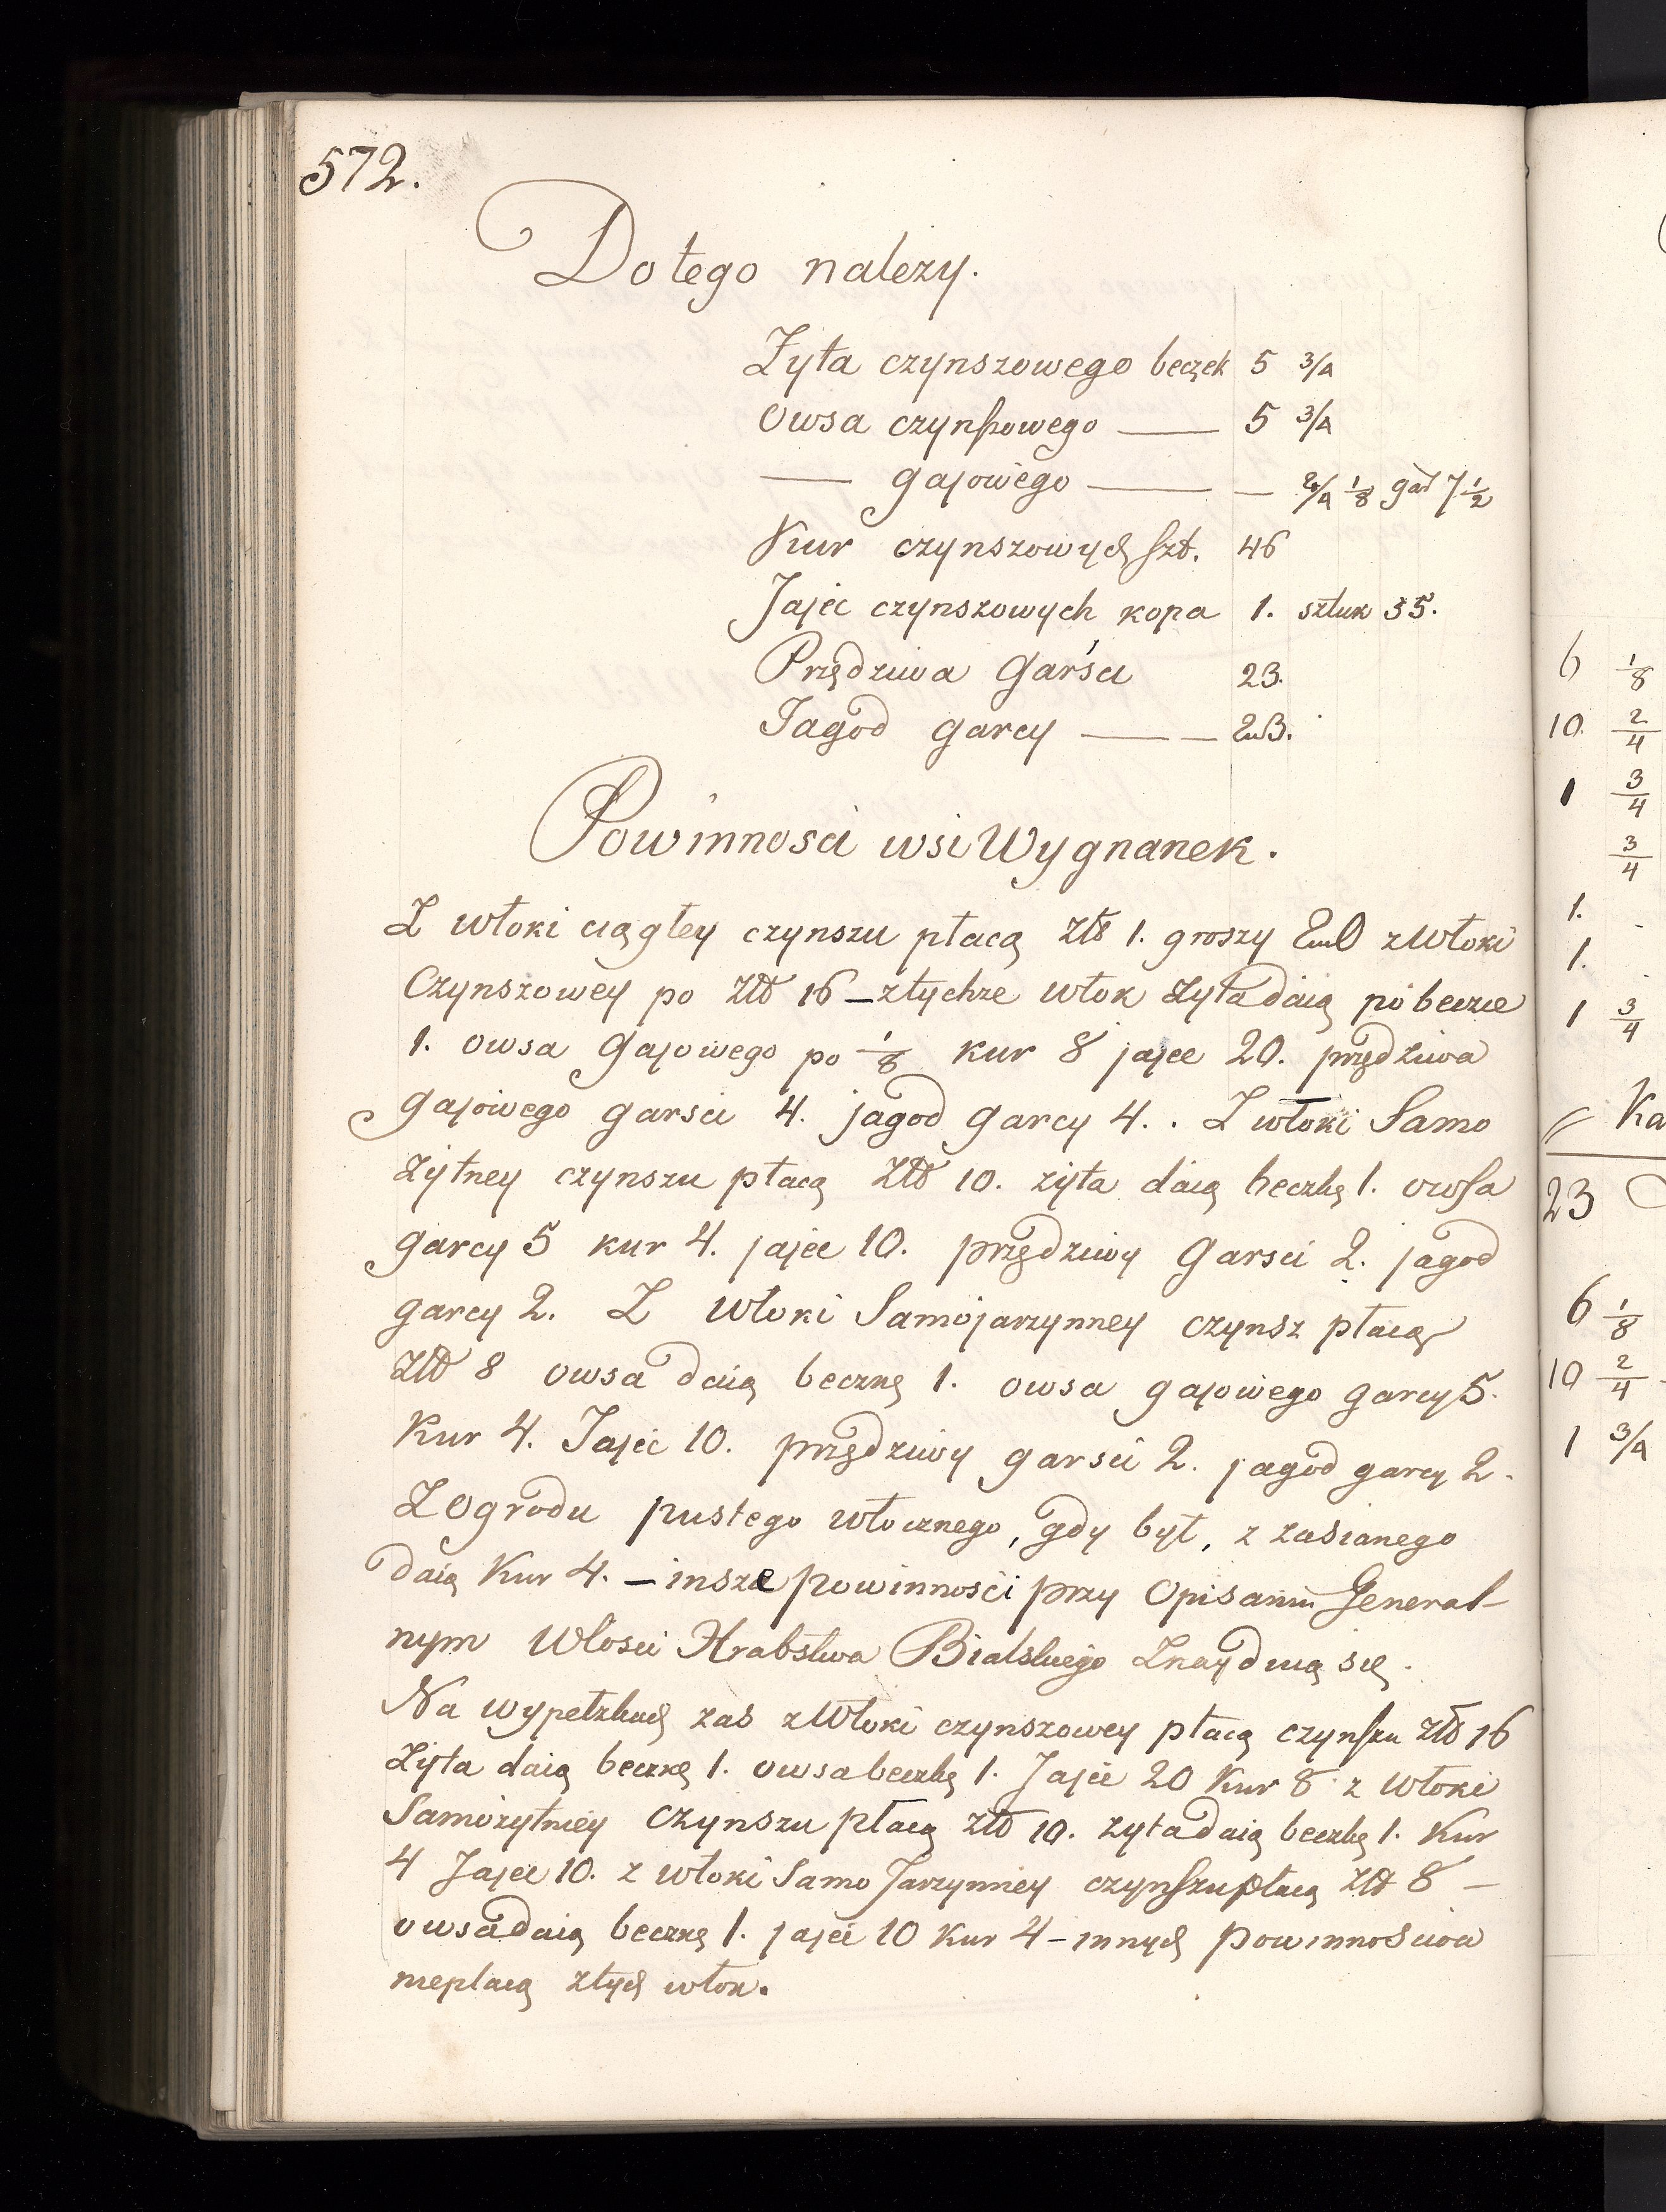 572.
Do tego nalezy.
Zyta czynszowego beczek 5 3/4
Owsa czynszowego — 5 3/4
— gajowego — — 2/4 1/8 gar 7 1/2
Kur czynszowych szt. 46
Jajec czynszowych kopa 1. sztuk 35.
Przędziwa Garści 23.
Jagod garcy — — 23.
Powinnosci wsi Wygnanek.
Z włoki ciągłey czynszu płacą złt 1. groszy 20 z Włoki
Czynszowey po złt 16 – z tychze włok zyta daią po beczce
1. owsa Gajowego po 1/8 kur 8 jajec 20. przędziwa
gajowego garsci 4. jagod garcy 4. . Z włoki Samo
żytney czynszu płacą złt 10. zyta daią beczkę 1. owsa
garcy 5 kur 4. jajec 10. przędziwy Garsci 2. jagod
garcy 2. Z Włoki Samojarzynney czynsz płacą
złt 8 owsa daią beczkę 1. owsa gajowego garcy 5.
Kur 4. Jajec 10. przędziwy garsci 2. jagod garcy 2.
Z Ogrodu pustego włocznego, gdy był, z zasianego
daią Kur 4. – insze powinnosci przy Opisaniu General-
nym Włosci Hrabstwa Bialskiego Znayduią się.
Na wypełzkach zas z Włoki czynszowey płacą czynszu złt 16
Zyta daią beczkę 1. owsa beczkę 1. Jajec 20 Kur 8 z Włoki
Samożytniey czynszu płacą złt 10. zyta daią beczkę 1. Kur
4 Jajec 10. z włoki Samo Jarzynney czynszu płacą złt 8 –
owsa daią beczkę 1. jajec 10 Kur 4 – innych powinnosciow
nie płacą z tych włok.
6 1/8
10. 2/4
1 3/4
3/4
1.
1.
1 3/4
Ka
23
6 1/8
10 2/4
1 3/4